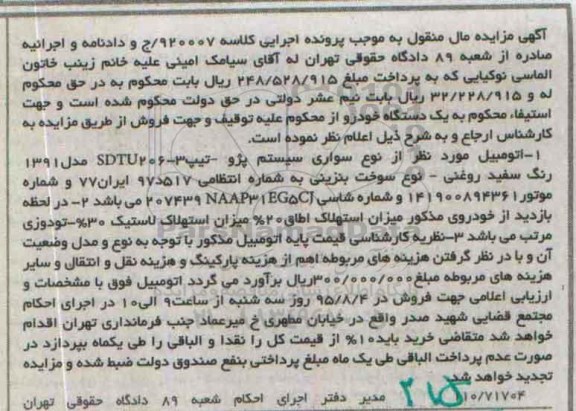 آگهی مزایده مال منقول به موجب پرونده اجرایی کلاسه ۹۲۰۰۰۷/ج و دادنامه و اجرائیه
صادره از شعبه ۸۹ دادگاه حقوقی تهران له آقای سیامک امینی علیه خانم زینب خاتون
الماسی نوکیایی که به پرداخت مبلغ ۲۴۸/۵۲۸/۹۱۵ ریال بابت محکوم به در حق محکوم
له و ۳۲/۲۲۸/۹۱۵ ریال بابت نیم عشر دولتی در حق دولت محکوم شده است و جهت
استیفاء محکوم به یک دستگاه خودرو از محکوم علیه توقیف و جهت فروش از طریق مزایده به
کارشناس ارجاع و به شرح ذیل اعلام نظر نموده است.
۱-اتومبیل مورد نظر از نوع سواری سیستم پژو -تیپ۳-SDTU۲۰۶ مدل۱۳۹۱
رنگ سفید روغنی - نوع سوخت بنزینی به شماره انتظامی ۵۱۷د۹۷ ایران۷۷ و شماره
موتور۱۴۱۹۰۰۸۹۴۳۶۱ و شماره شاسی NAAP۳۱EG۵CJ ۲۰۷۴۳۹ می باشد ۲- در لحظه
بازدید از خودروی مذکور میزان استهلاک اطاق۲۰% میزان استهلاک لاستیک ۳۰%-تودوزی
مرتب می باشد ۳-نظریه کارشناسی قیمت پایه اتومبیل مذکور با توجه به نوع و مدل وضعیت
آن و با در نظر گرفتن هزینه های مربوطه اهم از هزینه پارکینگ و هزینه نقل و انتقال و سایر
هزینه های مربوطه مبلغ۳۰۰/۰۰۰/۰۰۰ریال برآورد می گردد اتومبیل فوق با مشخصات و
ارزیابی اعلامی جهت فروش در ۹۵/۸/۴ روز سه شنبه از ساعت۹ الی۱۰ در اجرای احکام
مجتمع قضایی شهید صدر واقع در خیابان مطهری خ میرعماد جنب فرمانداری تهران اقدام
خواهد شد متقاضی خرید باید۱۰% از قیمت کل را نقدا و الباقی را طی یکماه بپردازد در
صورت عدم پرداخت الباقی طی یک ماه مبلغ پرداختی بنفع صندوق دولت ضبط شده و مزایده
تجدید خواهد شد.
۱۱۰/۷۱۷۰۴ مدیر دفتر اجرای احکام شعبه ۸۹ دادگاه حقوقی تهران